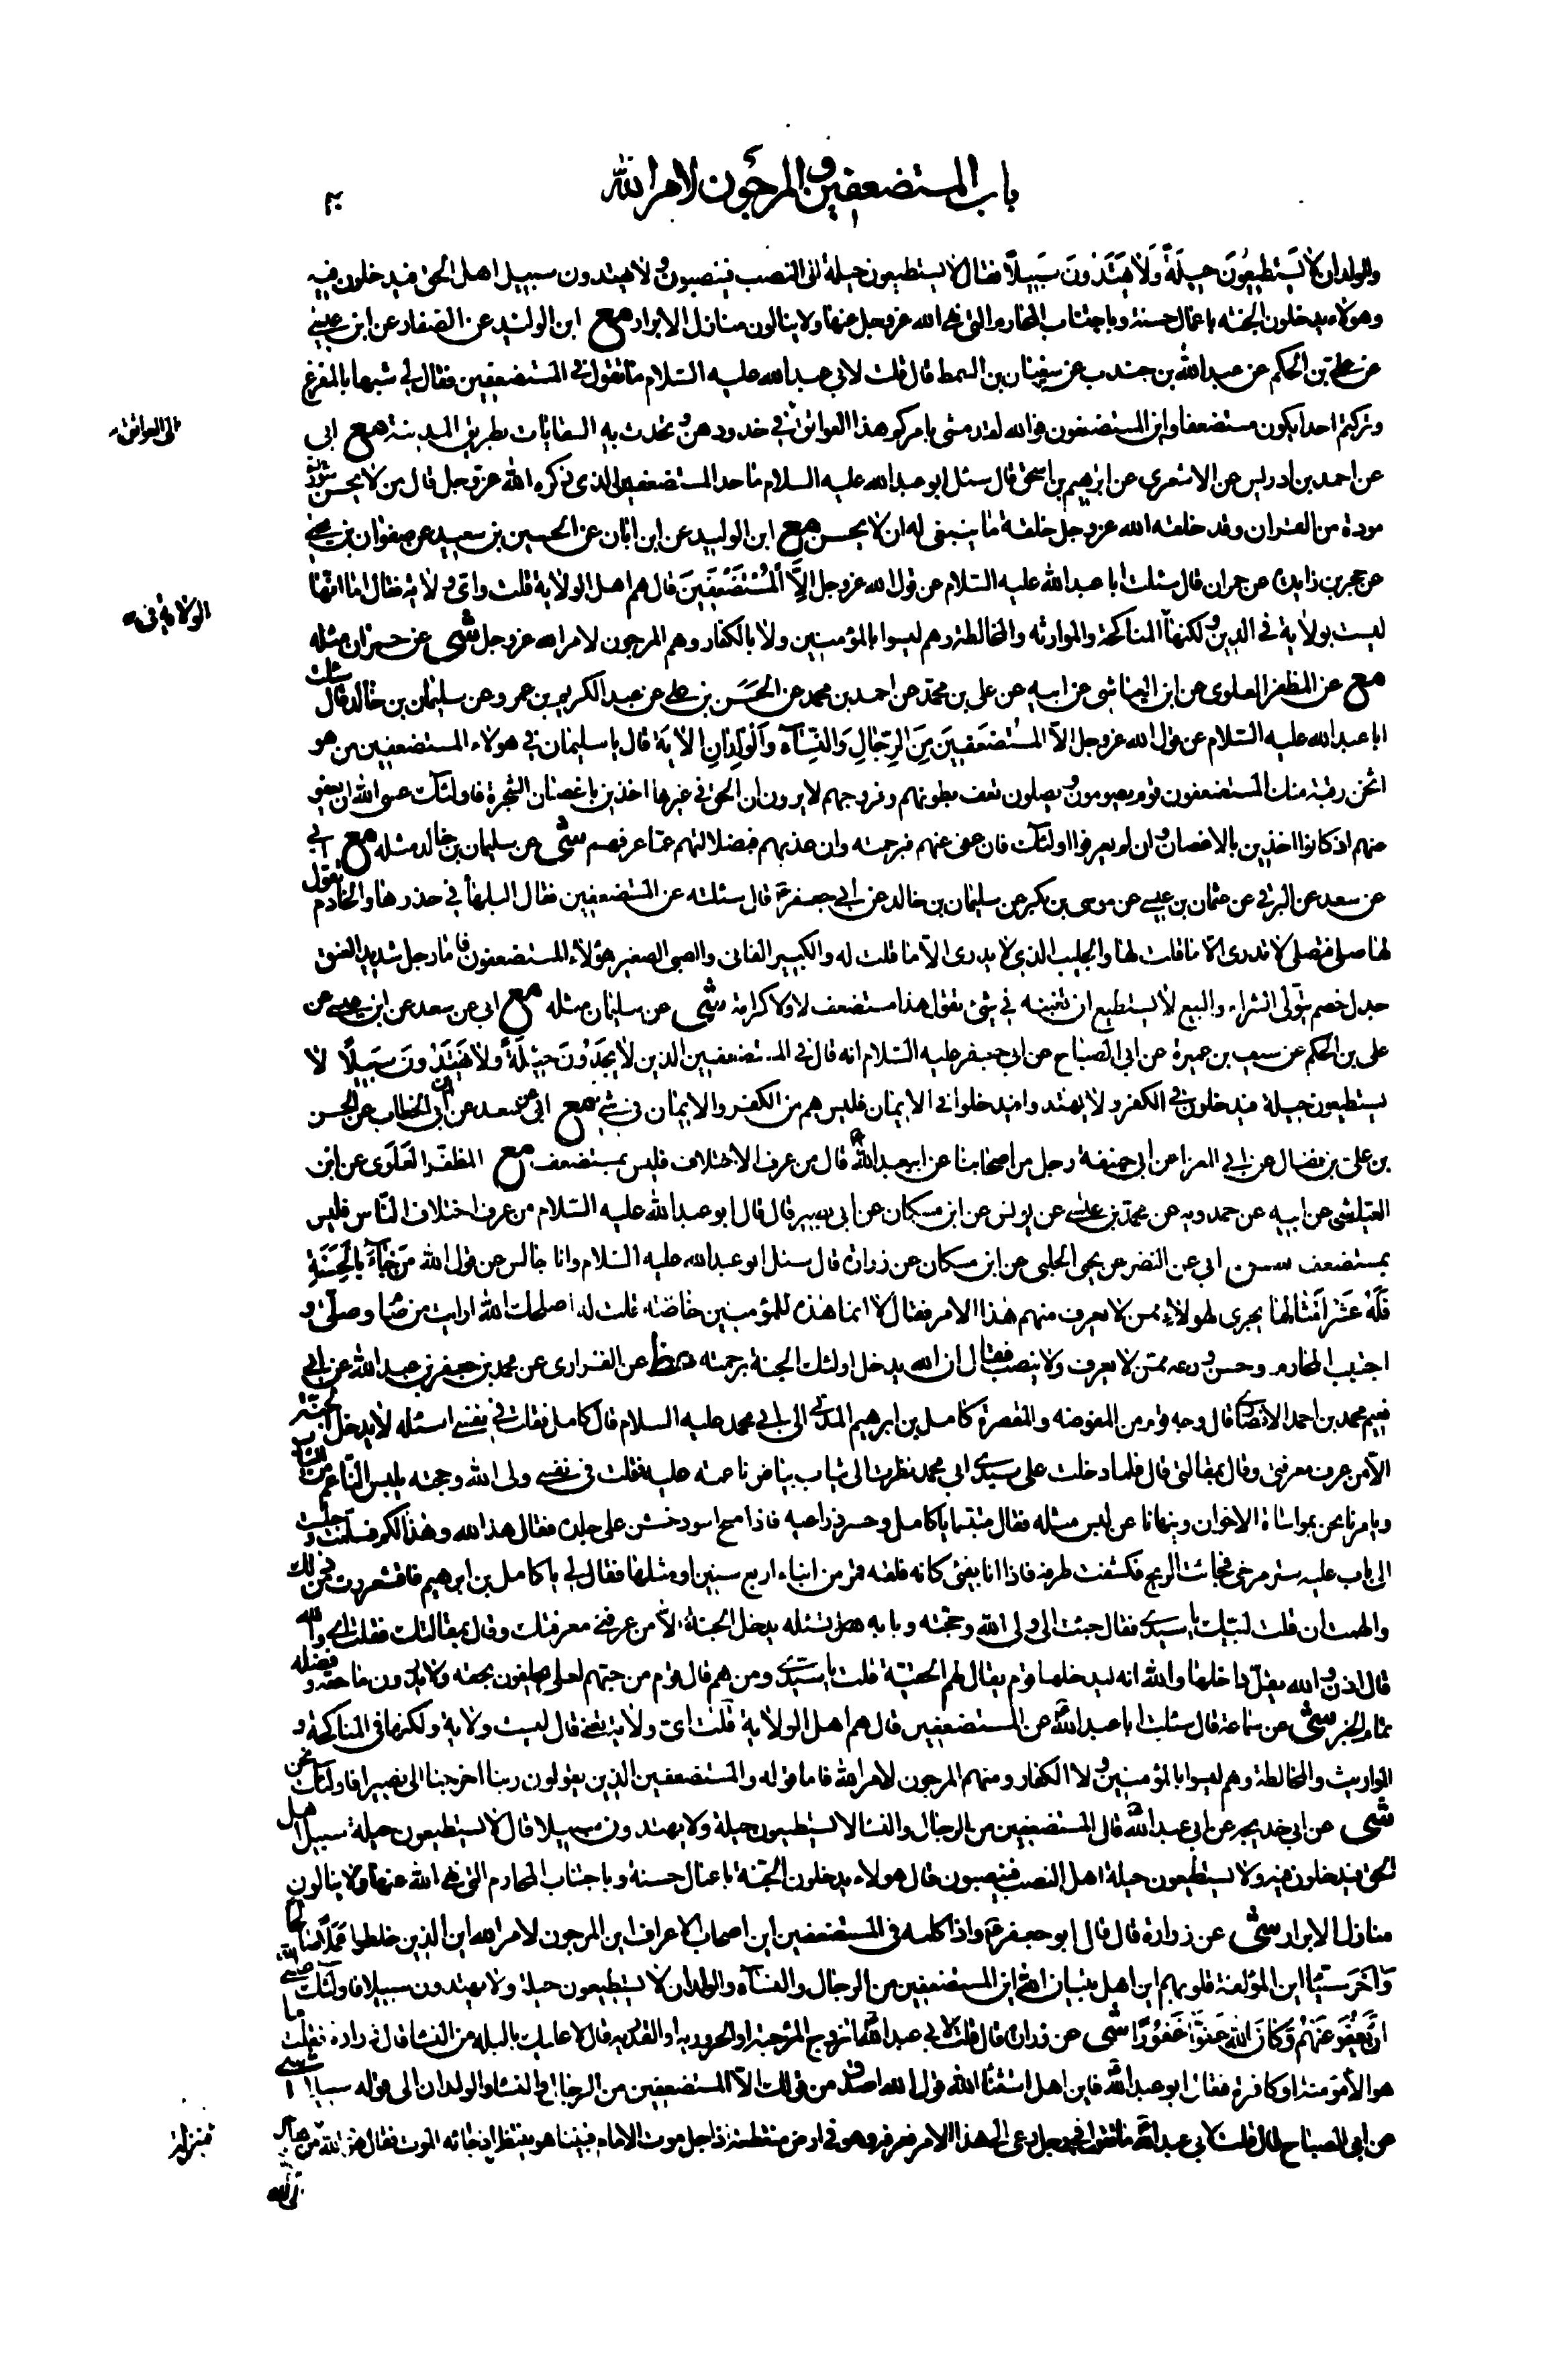 باب المستضعفين و المرجون لامر الله
والولدان لا يستطيعون حيلة ولا يهتدون سبيلا فقال لا يستطيعون حيلة الى النصب فينصبون ولا يهتدون سبيل اهل الحق فيدخلون فيه
وهولاء يدخلون الجنة باعمال حسنة وباجتناب المحارم التى نهى الله عزوجل عنها ولا ينالون منازل الابرار مع ابن الوليد عن الصفار عن ابن عيسى
عن على بن الحكم عن عبدالله بن جندب عن سفيان بن السمط قال قلت لابى عبدالله عليه السلام ما تقول فى المستضعفين فقال لى شبيها بالمفزع
وتركتم احدا يكون مستضعفا واين المستضعفون فوالله لقد مشى بامركم هذا العواتق فى خدورهن وتحدث به السقايات بطريق المدينة مع ابى
الى العواتق
عن احمد بن ادريس عن الاشعرى عن ابرهيم بن اسحق قال سئل ابو عبدالله عليه السلام ما حد المستضعف الذى ذكره الله عزوجل قال من لا يحسن سورة
من القران وقد خلقه الله عزوجل خلقة ما ينبغى له ان لا يحسن مع ابن الوليد عن ابن ابان عن الحسين بن سعيد عن صفوان بن يحيى
عن حجر بن زايدة عن حمران قال سئلت ابا عبدالله عليه السلام عن قول الله عزوجل الا المستضعفين قال هم اهل الولاية قلت واى ولاية فقال اما انها
الولاية فى
ليست بولاية فى الدين ولكنها المناكحة والموارثه والمخالطة وهم ليسوا بالمؤمنين ولا بالكفار وهم المرجون لامر الله عزوجل شى عن حمران مثله
مع عن المظفر العلوى عن ابن العياشى عن ابيه عن على بن محمد عن احمد بن محمد عن الحسن بن على عن عبد الكريم بن عمرو عن سليمان بن خالد قال سئلت
ابا عبدالله عليه السلام عن قول الله عزوجل الا المستضعفين من الرجال والنساء والولدان الاية قال يا سليمان فى هولاء المستضعفين من هو
اثخن رقبة منك المستضعفون قوم يصومون ويصلون تعف بطونهم وفروجهم لا يرون ان الحق فى غيرها اخذين باغصان الشجرة فاولئك عسى الله ان يعفو
عنهم اذ كانوا اخذين بالاغصان وان لم يعرفوا اولئك فان عفى عنهم فبرحمته وان عذبهم فبضلالتهم عما عرفهم شى عن سليمان بن خالد مثله مع ابى
عن سعد عن البرقى عن عثمان بن عيسى عن موسى بن بكر عن سليمان بن خالد عن ابى جعفر ع قال سئلته عن المستضعفين فقال البلهاء فى خدرها والخادم تقول
لها صلى فتصلى لا تدرى الا ما قلت لها والجليب الذى لا يدرى الا ما قلت له والكبير الفانى والصبى الصغير هؤلاء المستضعفون فاما رجل شديد العنق
جدل خصم يتولى الشراء والبيع لا يستطيع ان تغبنه فى شئ تقول هذا مستضعف لا ولا كرامة شى عن سليمان مثله مع ابى عن سعد عن ابن عيسى عن
على بن الحكم عن سيف بن عميرة عن ابى الصباح عن ابى جعفر عليه السلام انه قال فى المستضعفين الذين لا يجدون حيلة ولا يهتدون سبيلا لا
يستطيعون حيلة فيدخلون فى الكفر ولا يهتدوا فيدخلوا فى الايمان فليس هم من الكفر والايمان فى شئ مع ابى عن سعد عن ابن ابى الخطاب عن الحسن
بن على بن فضال عن ابى المعزا عن ابى حنيفة رجل من اصحابنا عن ابى عبدالله ع قال من عرف الاختلاف فليس بمستضعف مع المظفر العلوى عن ابن
العياشى عن ابيه عن حمدويه عن محمد بن عيسى عن يونس عن ابن مسكان عن ابى بصير قال قال ابو عبدالله عليه السلام من عرف اختلاف الناس فليس
بمستضعف سن ابى عن النضر عن يحيى الحلبى عن ابن مسكان عن زرارة قال سئل ابو عبدالله عليه السلام وانا جالس عن قول الله من جاء بالحسنة
فله عشر امثالها يجرى لهولاء ممن لا يعرف منهم هذا الامر فقال لا انما هذه للمؤمنين خاصة قلت له اصلحك الله ارايت من صام وصلى و
اجتنب المحارم وحسن ورعه ممن لا يعرف ولا ينصب فقال ان الله يدخل اولئك الجنة برحمته غط عن الفزارى عن محمد بن جعفر بن عبدالله عن ابى
نعيم محمد بن احمد الانصارى قال وجه قوم من المفوضه والمقصرة كامل بن ابرهيم المدنى الى ابى محمد عليه السلام قال كامل فقلت فى نفسى اسئله لا يدخل الجنة
الا من عرف معرفتى وقال بمقالتى قال فلما دخلت على سيدى ابى محمد نظرت الى ثياب بياض ناعمة عليه فقلت فى نفسى ولى الله وحجته يلبس الناعم من الثياب
ويامرنا نحن بمواساة الاخوان وينهانا عن لبس مثله فقال متبسما يا كامل وحسر ذراعيه فاذا مسح اسود خشن على جلده فقال هذا لله وهذا لكم فسلمت وجلست
الى باب عليه ستر مرخى فجائت الريح فكشفت طرفه فاذا انا بفتى كانه فلقة قمر من ابناء اربع سنين او مثلها فقال لى يا كامل بن ابرهيم فاقشعررت من ذلك
والهمت ان قلت لبيك يا سيدى فقال جئت الى ولى الله وحجته وبابه تسئله يدخل الجنة الا من عرف معرفتك وقال بمقالتك فقلت اى والله
قال اذن والله يقل داخلها والله انه ليدخلها قوم يقال لهم الحقية قلت يا سيدى ومن هم قال قوم من حبهم لعلى يحلفون بحقه ولا يدرون ما حقه وفضله
تمام الخبر شى عن سماعة قال سئلت ابا عبدالله ع عن المستضعفين قال هم اهل الولاية قلت اى ولاية تعنى قال ليست ولاية ولكنها فى المناكحة و
المواريث والمخالطة وهم ليسوا بالمؤمنين ولا الكفار ومنهم المرجون لامر الله فاما قوله والمستضعفين الذين يقولون ربنا اخرجنا الى نصيرا فاولئك نحن
شى عن ابى خديجه عن ابى عبدالله ع قال المستضعفين من الرجال والنسا لا يستطيعون حيلة ولا يهتدون سبيلا قال لا يستطيعون حيلة سبيل اهل
الحق فيدخلون فيه ولا يستطيعون حيلة اهل النصب فينصبون قال هولاء يدخلون الجنة باعمال حسنة وباجتناب المحارم التى نهى الله عنها ولا ينالون
منازل الابرار شى عن زرارة قال قال ابو جعفر ع واذا كلمه فى المستضعفين اين اصحاب الاعراف اين المرجون لامر الله اين الذين خلطوا عملا صالحا
واخر سيئا اين المؤلفة قلوبهم اين اهل تبيان الله اين المستضعفين من الرجال والنساء والولدان لا يستطيعون حيلة ولا يهتدون سبيلا فاولئك عسى الله
ان يعفو عنهم وكان الله عفوا غفورا شى عن زرارة قال قلت لابى عبدالله ع اتزوج المرجئة او الحروريه او القدريه قال لا عليك بالبله من النسا قال زرارة فقلت ما
هو الا مؤمنة او كافرة فقال ابو عبدالله ع فاين اهل استثناء الله قول الله اصدق من قولك الا المستضعفين من الرجال والنسا والولدان الى قوله سبيلا شى
عن ابى الصباح قال قلت لابى عبدالله ع ما تقول فى رجل دعى الى هذا الامر فعرفه وهو فى ارض منقطعة اذ اجل موت الامام فبينا هو ينتظر اذ جائه الموت فقال هو والله
بمنزلة